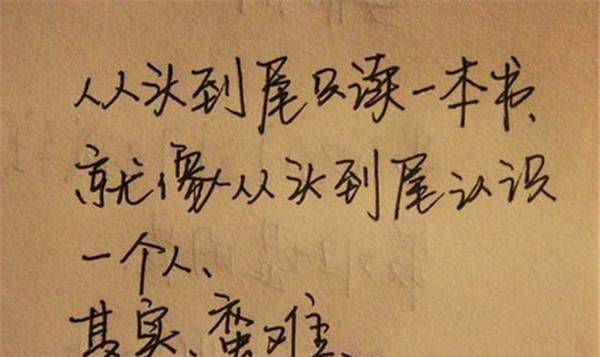 从从头到尾只读一本书、
就像从头到尾认识
一个人、
其实、蛮难、